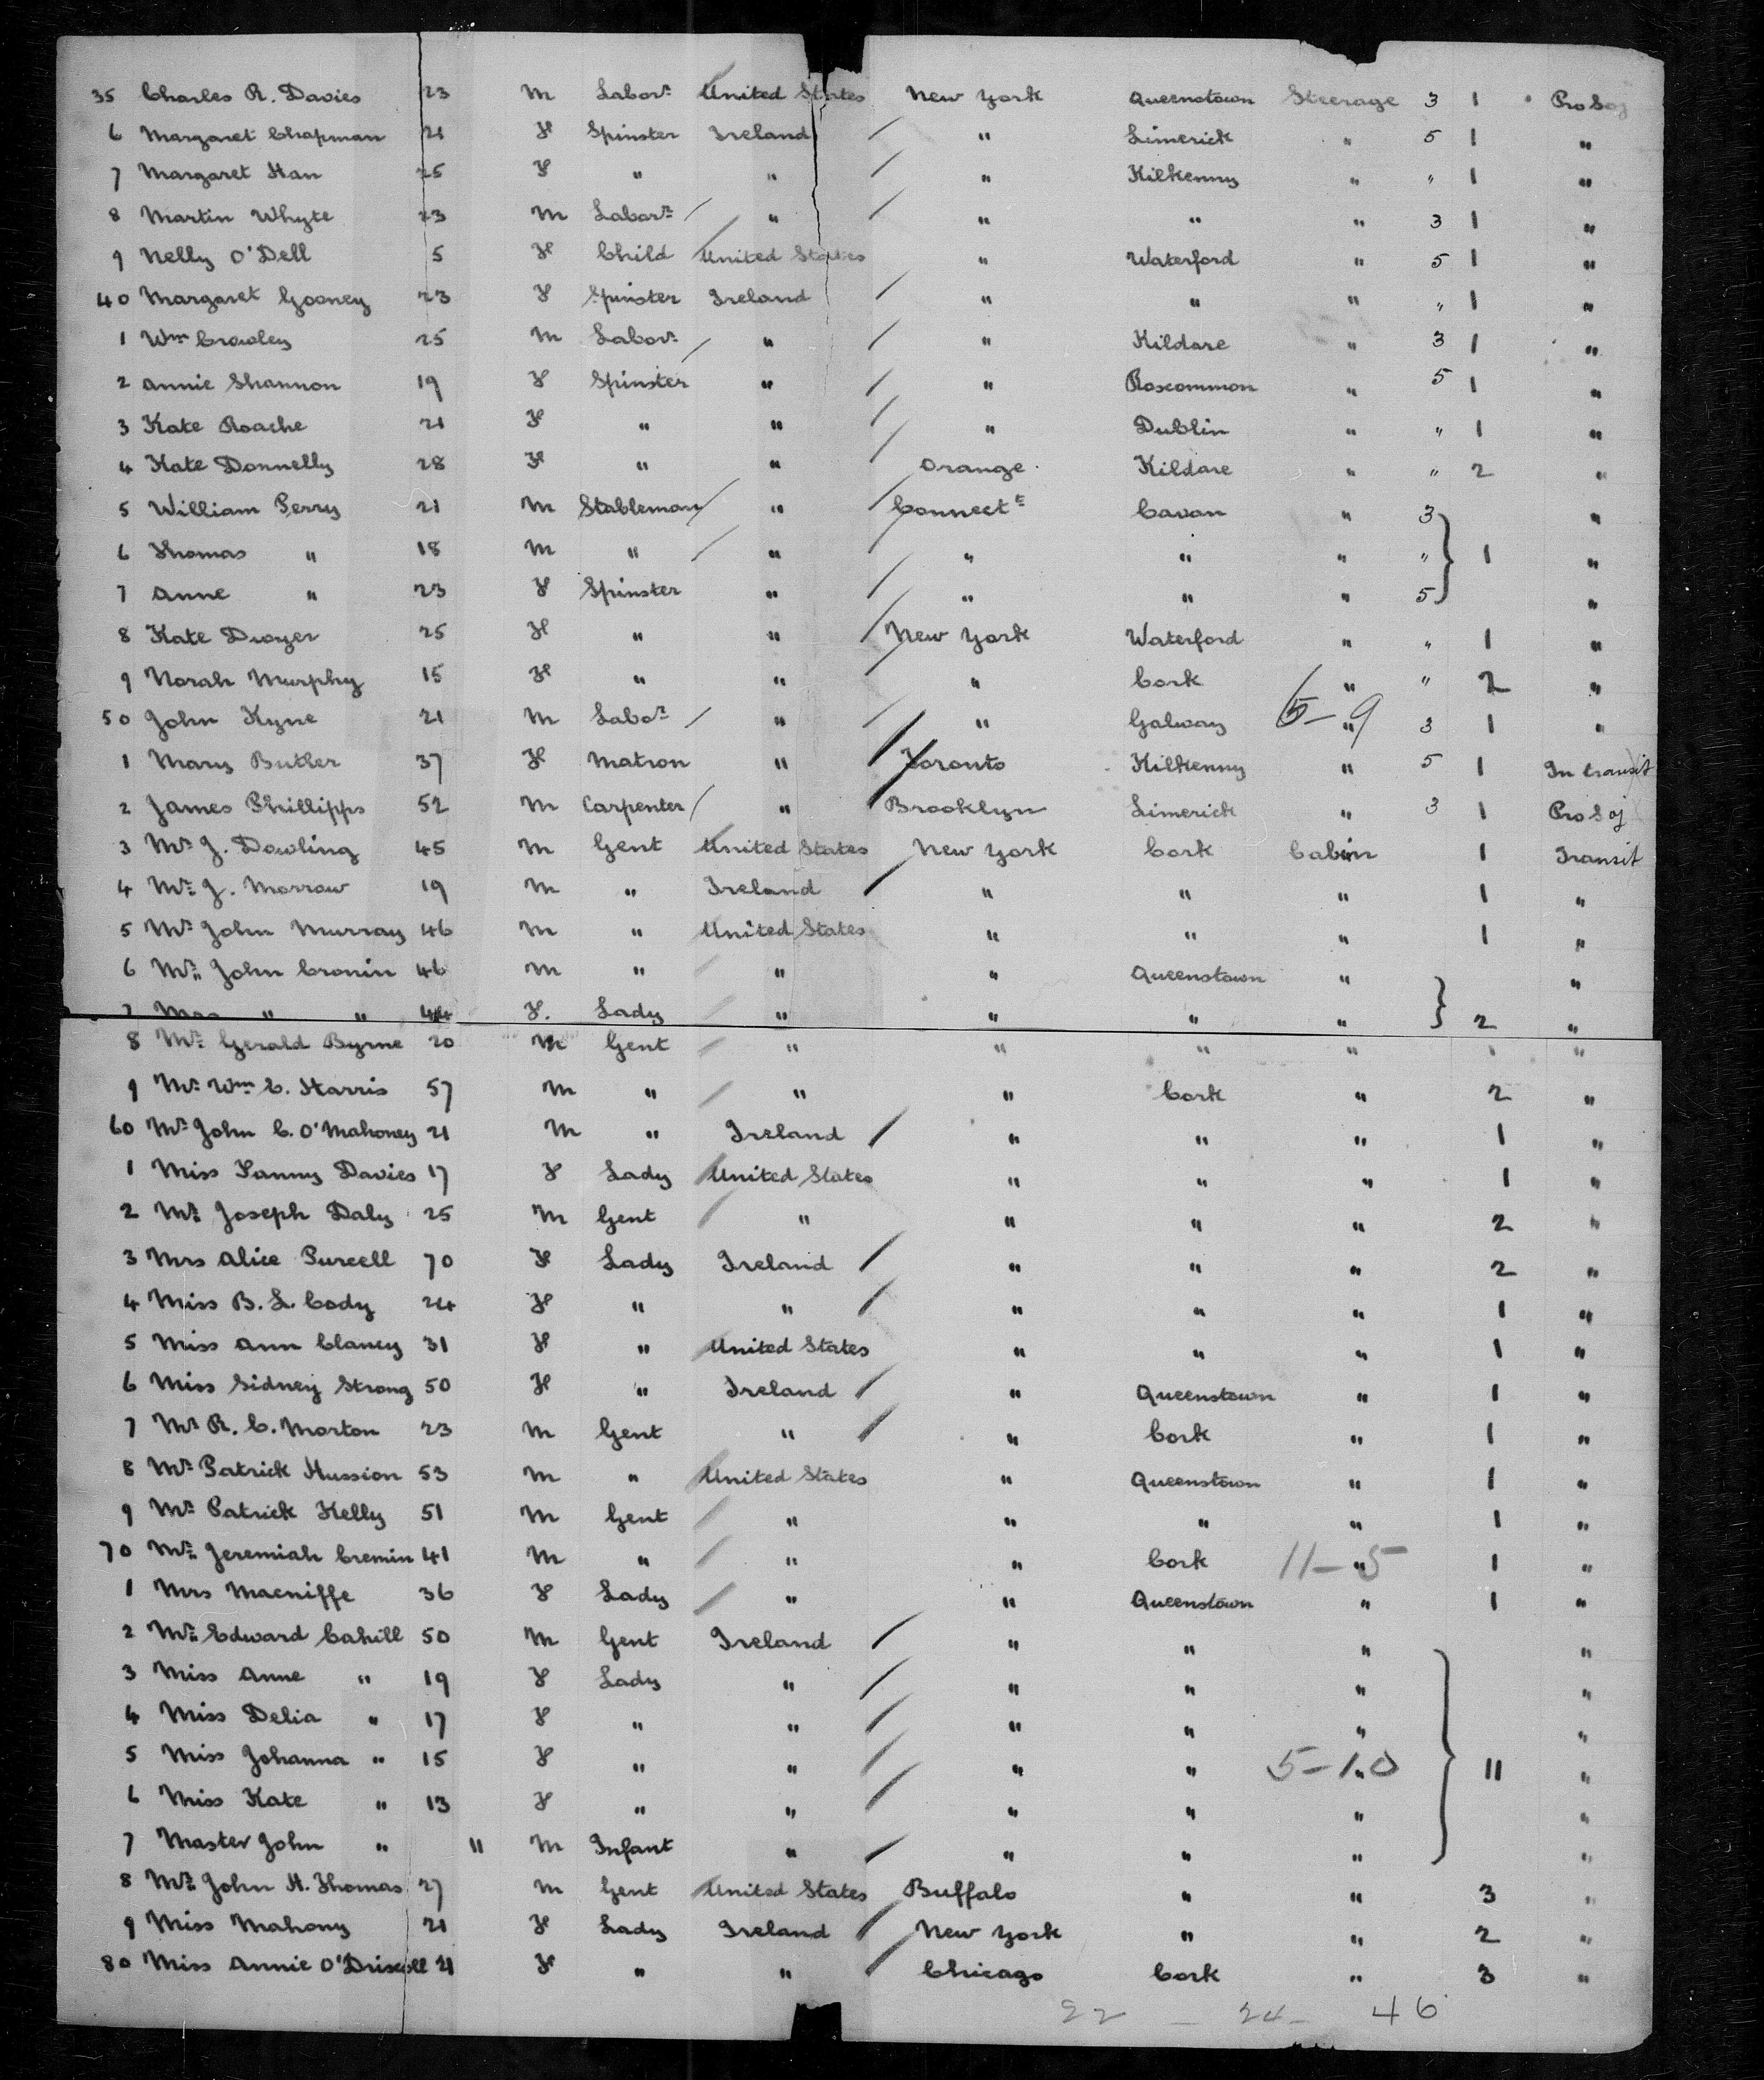 35 Charles R. Davies 23 M Labor.r United States New York Queenstown Steerage 3 1 Pro Soj
6 Margaret Chapman 21 F Spinster Ireland " Limerick " 5 1 "
7 Margaret Han 25 F " " " Kilkenny " " 1 "
8 Martin Whyte 23 M Labor.r " " " " 3 1 "
9 Nelly O'Dell 5 F Child United States " Waterford " 5 1 "
40 Margaret Gooney 23 F Spinster Ireland " " " " 1 "
1 Wm Crowley 25 M Labor.r " " Kildare " 3 1 "
2 Annie Shannon 19 F Spinster " " Roscommon " 5 1 "
3 Kate Roache 21 F " " " Dublin " " 1 "
4 Kate Donnelly 28 F " " Orange Kildare " " 2 "
5 William Perry 21 M Stableman " Connectt Cavan " 3 "
6 Thomas " 18 M " " " " " " 1 "
7 Anne " 23 F Spinster " " " " 5 "
8 Kate Dwyer 25 F " " New York Waterford " " 1 "
9 Norah Murphy 15 F " " " Cork " " 2 "
50 John Kyne 21 M Labo.r " " Galway 5-9 " 3 1 "
1 Mary Butler 37 F Matron " Toronto Kilkenny " 5 1 In transit
2 James Phillipps 52 M Carpenter " Brooklyn Limerick " 3 1 Pro Soj
3 Mr J. Dowling 45 M Gent United States New York Cork Cabin 1 Transit
4 Mr J. Morrow 19 M " Ireland " " " 1 "
5 Mr John Murray 46 M " United States " " " 1 "
6 Mr John Cronin 46 M " " " Queenstown " "
7 Mrs " " 44 F. Lady " " " " 2 "
8 Mr Gerald Byrne 20 M Gent " " " " 1 "
9 Mr Wm C. Harris 57 M " " " Cork " 2 "
60 Mr John C. O'Mahoney 21 M " Ireland " " " 1 "
1 Miss Fanny Davies 17 F Lady United States " " " 1 "
2 Mr Joseph Daly 25 M Gent " " " " 2 "
3 Mrs Alice Purcell 70 F Lady Ireland " " " 2 "
4 Miss B. L. Cody 24 F " " " " " 1 "
5 Miss Ann Clancy 31 F " United States " " " 1 "
6 Miss Sidney Strong 50 F " Ireland " Queenstown " 1 "
7 Mr R. C. Morton 23 M Gent " " Cork " 1 "
8 Mr Patrick Hussion 53 M " United States " Queenstown " 1 "
9 Mr Patrick Kelly 51 M Gent " " " " 1 "
70 Mr Jeremiah Cremin 41 M " " " Cork 11-5 " 1 "
1 Mrs Macniffe 36 F Lady " " Queenstown " 1 "
2 Mr Edward Cahill 50 M Gent Ireland " " " "
3 Miss Anne " 19 F Lady " " " " "
4 Miss Delia " 17 F " " " " " "
5 Miss Johanna " 15 F " " " " 5-10 " 11 "
6 Miss Kate " 13 F " " " " " "
7 Master John " 11 M Infant " " " " "
8 Mr John H. Thomas 27 M Gent United States Buffalo " " 3 "
9 Miss Mahony 21 F Lady Ireland New York " " 2 "
80 Miss Annie O'Driscoll 21 F " " Chicago Cork " 3 "
22 - 24 - 46